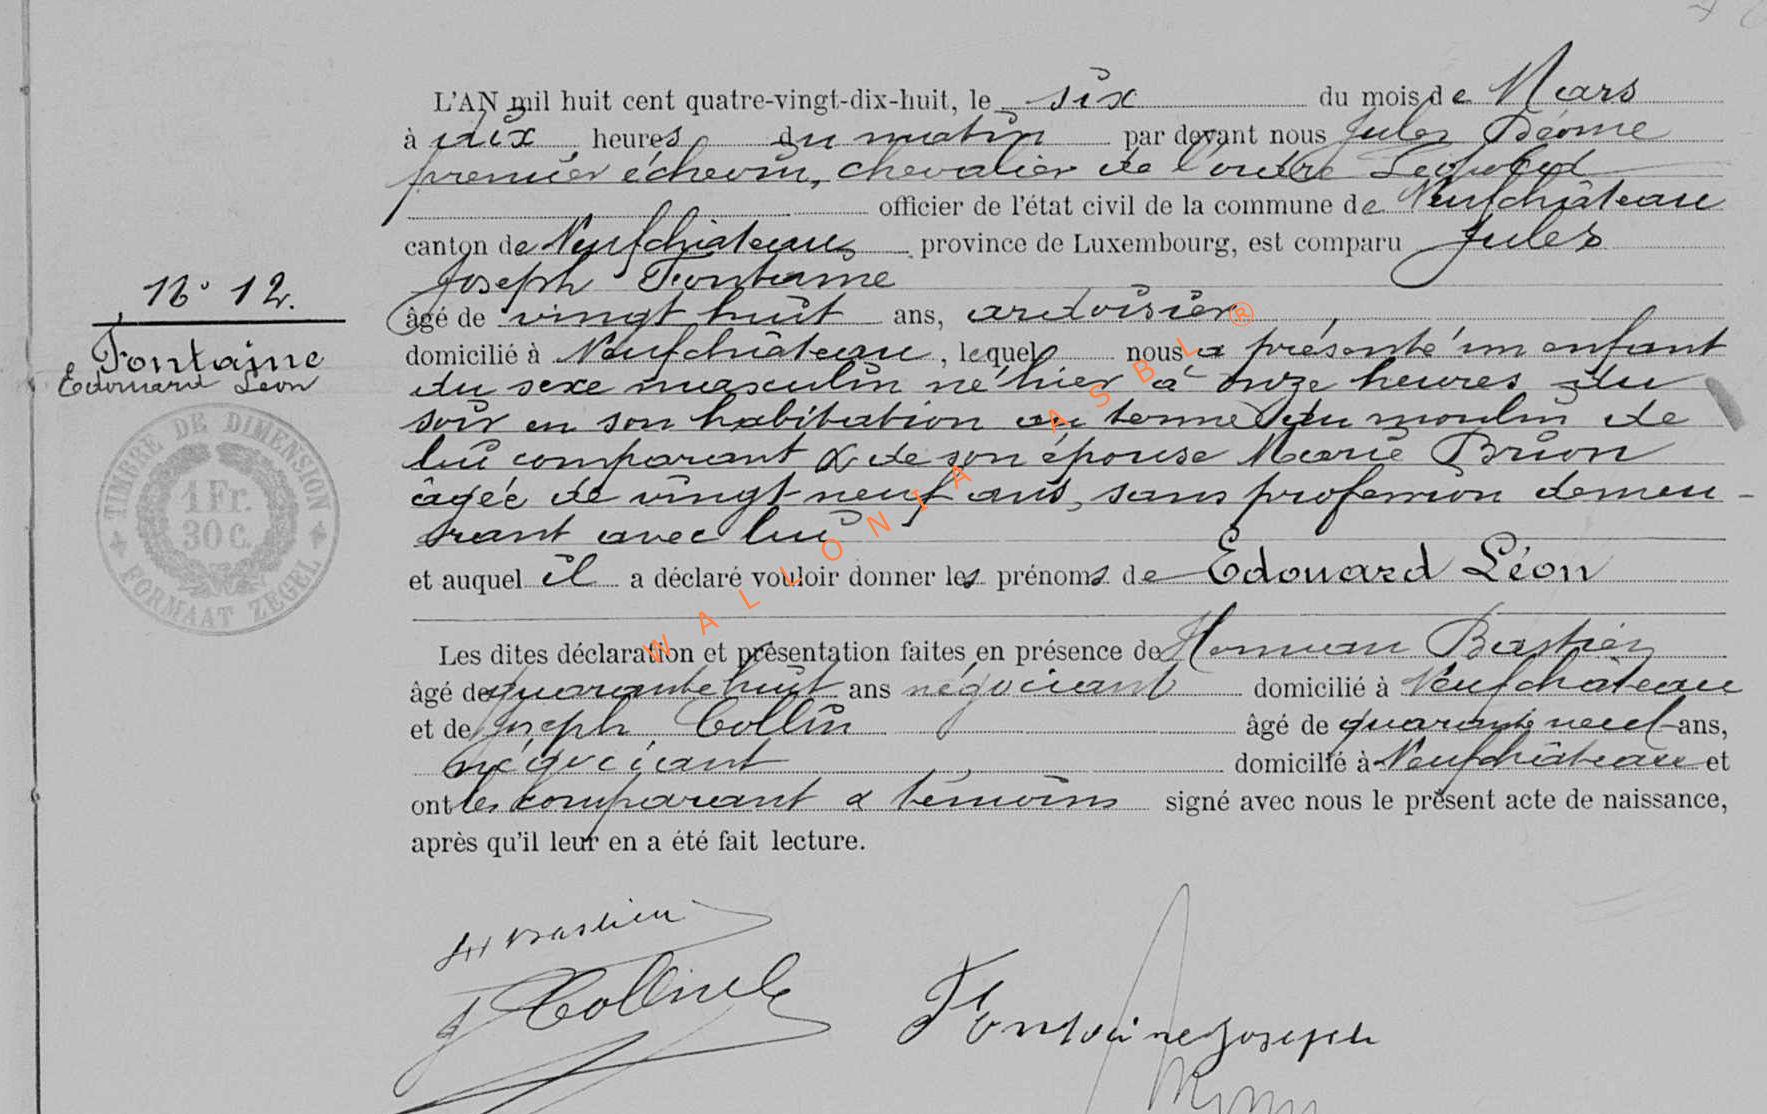 L'AN mil huit cent quatre-vingt-dix-huit, le six du mois de Mars
à dix heures du matin par devant nous Jules Déome
premier échevin, chevalier de l'ordre Léopold
officier de l'état civil de la commune de Neufchâteau
canton de Neufchâteau, province de Luxembourg, est comparu Jules
Joseph Fontaine
âgé de vingt huit ans, ardoisier
domicilié à Neufchâteau, lequel nous a présenté un enfant
du sexe masculin né hier à onze heures du
soir en son habitation au terme du moulin de
lui comparant & de son épouse Marie Brion
âgée de vingt-neuf ans, sans profession demeu-
rant avec lui
et auquel il a déclaré vouloir donner les prénoms de Edouard Léon
Les dites déclaration et présentation faites en présence de Herman Bastien
âgé de quarante huit ans négociant domicilié à Neufchâteau
et de Joseph Collin âgé de quarante neuf ans,
négociant domicilié à Neufchâteau et
ont les comparant & témoins signé avec nous le présent acte de naissance,
après qu'il leur en a été fait lecture.
N° 12.
Fontaine
Edouard Léon
TIMBRE DE DIMENSION
1 Fr.
30 C.
FORMAAT ZEGEL
WALLONIA ASBL ®
H Bastien
J Collin
Fontaine Joseph